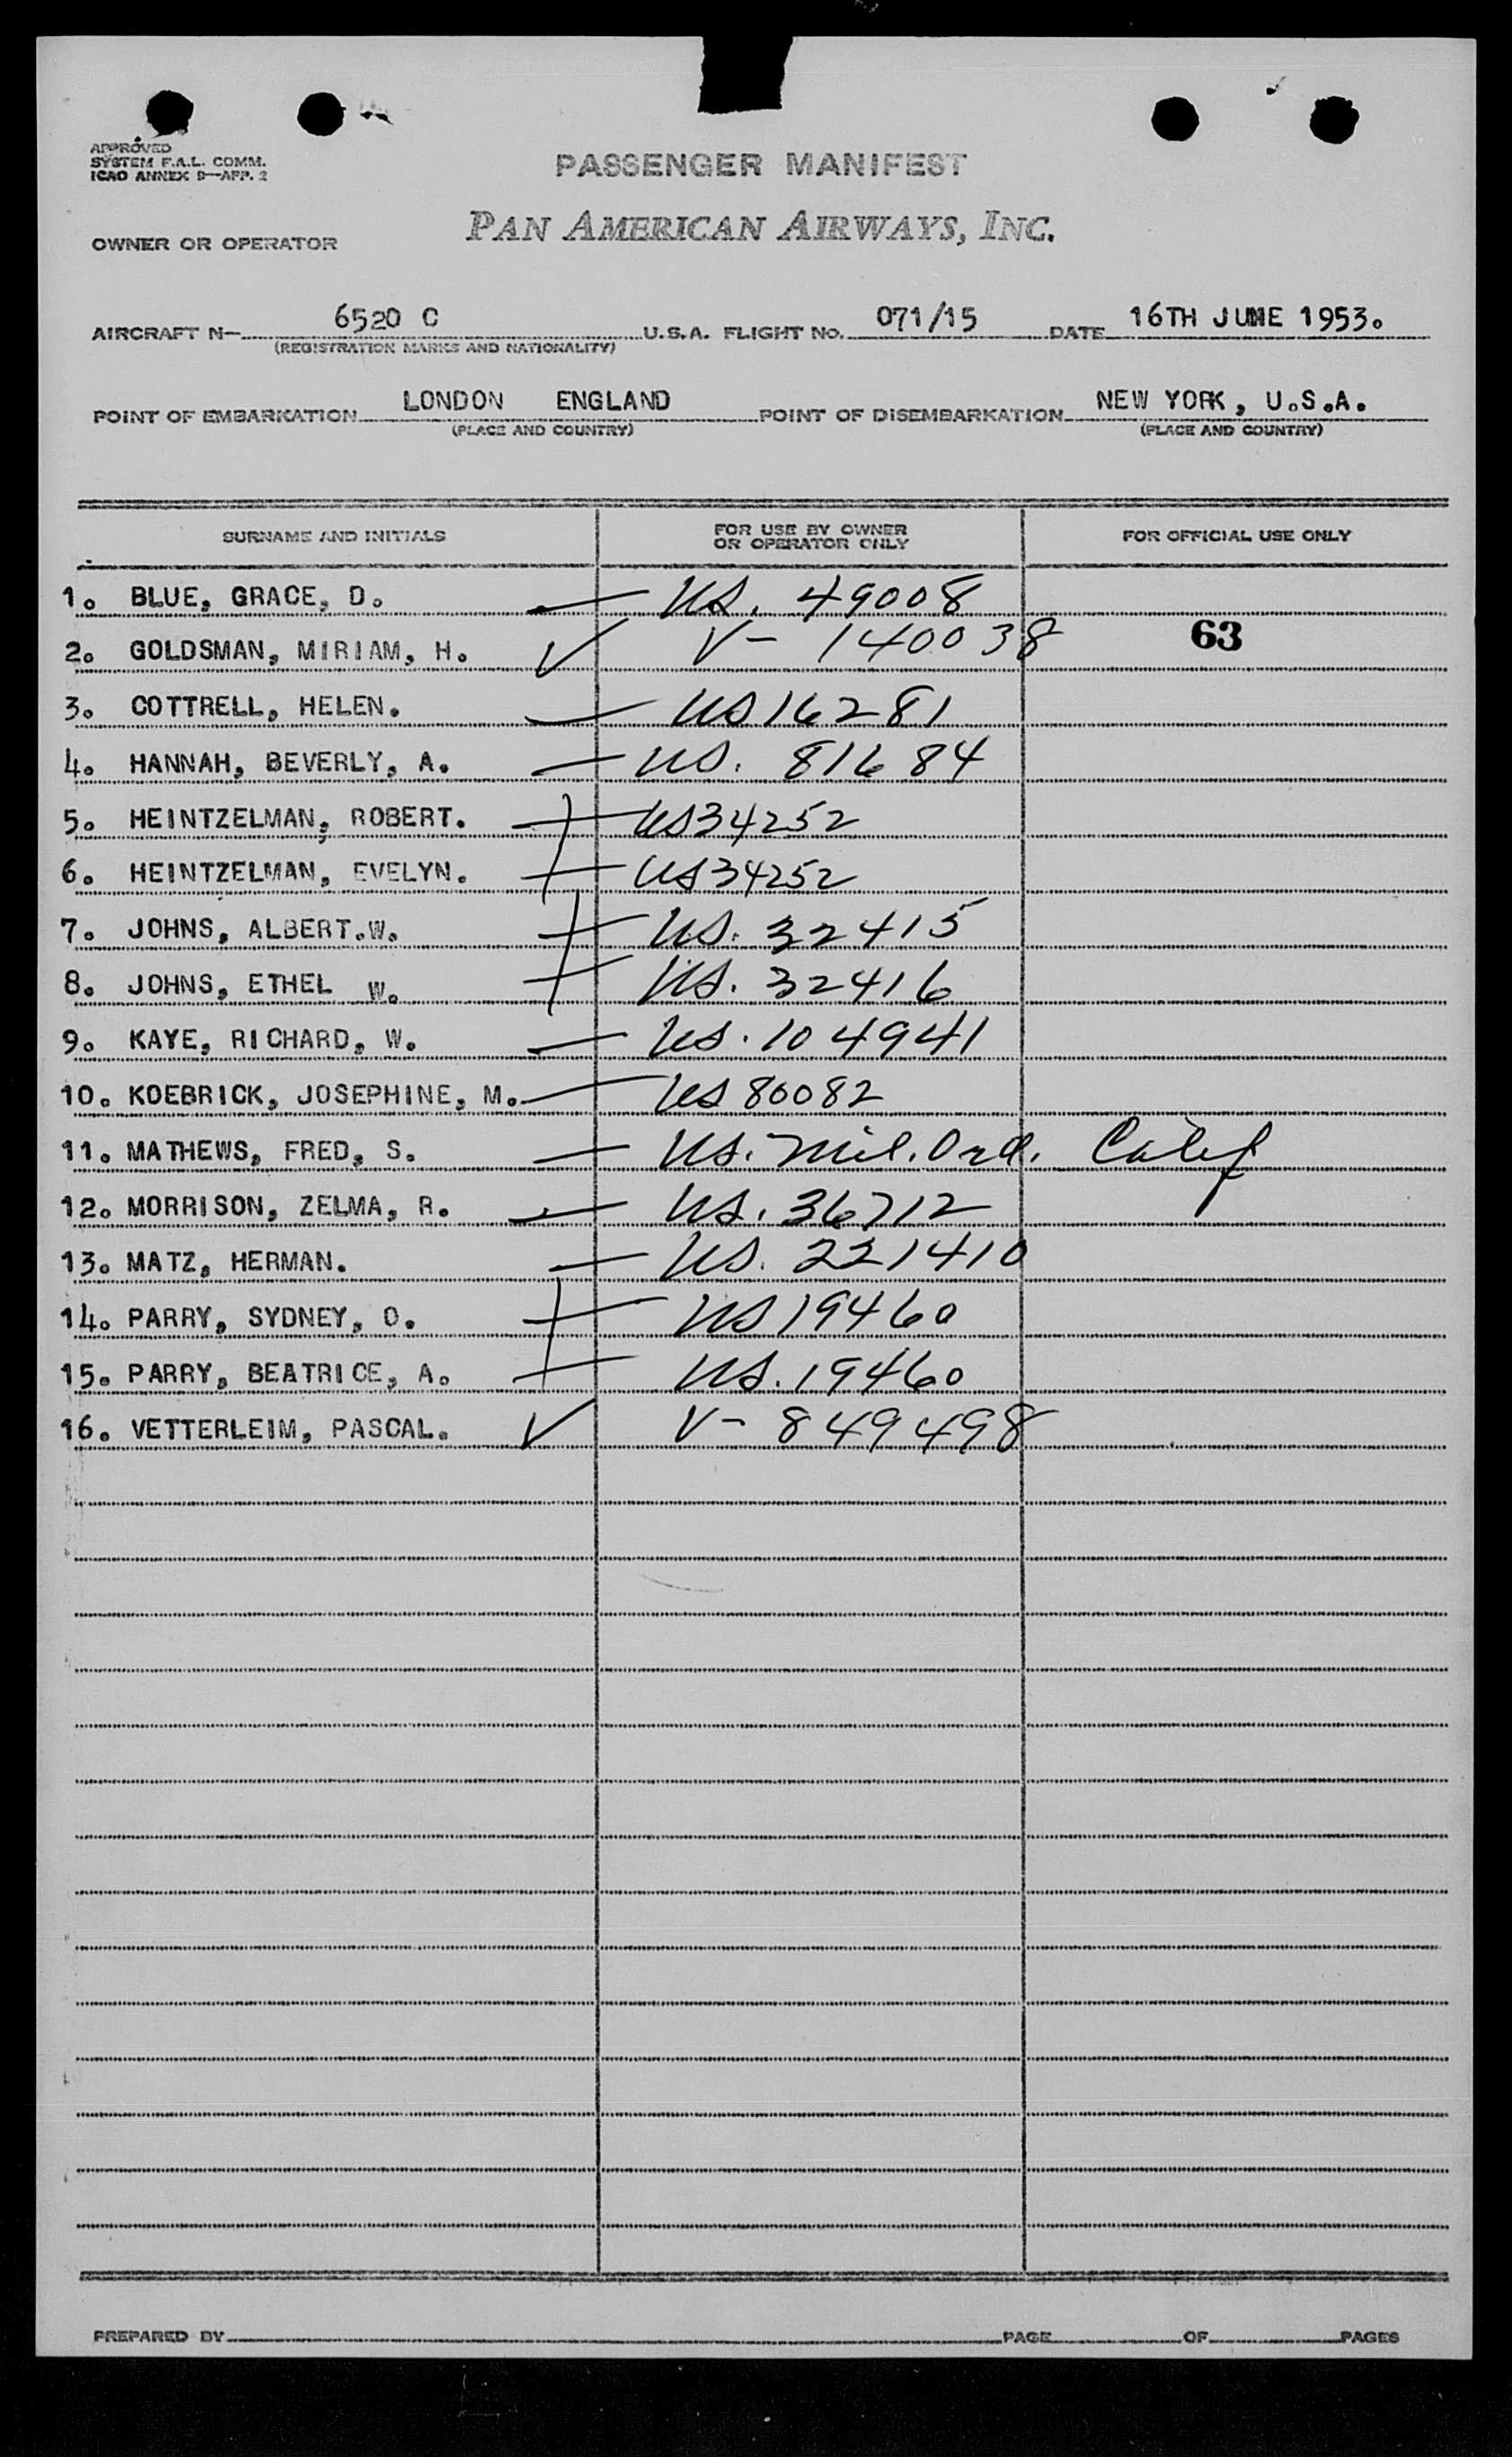 APPROVED
SYSTEM F.A.L. COMM.
ICAO ANNEX 9—APP. 2
PASSENGER MANIFEST
OWNER OR OPERATOR PAN AMERICAN AIRWAYS, INC.
AIRCRAFT N— 6520 C U.S.A. FLIGHT NO. 071/15 DATE 16TH JUNE 1953.
(REGISTRATION MARKS AND NATIONALITY)
POINT OF EMBARKATION LONDON ENGLAND POINT OF DISEMBARKATION NEW YORK, U.S.A.
(PLACE AND COUNTRY) (PLACE AND COUNTRY)
SURNAME AND INITIALS FOR USE BY OWNER OR OPERATOR ONLY FOR OFFICIAL USE ONLY
1. BLUE, GRACE, D. — US. 49008
2. GOLDSMAN, MIRIAM, H. ✓ V- 140038 63
3. COTTRELL, HELEN. — US 16281
4. HANNAH, BEVERLY, A. — US. 81684
5. HEINTZELMAN, ROBERT. — US34252
6. HEINTZELMAN, EVELYN. — US34252
7. JOHNS, ALBERT.W. — US. 32415
8. JOHNS, ETHEL W. — US. 32416
9. KAYE, RICHARD, W. — US. 104941
10. KOEBRICK, JOSEPHINE, M. — US 80082
11. MATHEWS, FRED, S. — US. Mil. Ord. Calif
12. MORRISON, ZELMA, R. — US. 36712
13. MATZ, HERMAN. — US. 221410
14. PARRY, SYDNEY, O. — US 19460
15. PARRY, BEATRICE, A. — US. 19460
16. VETTERLEIM, PASCAL. ✓ V- 849498
PREPARED BY PAGE OF PAGES